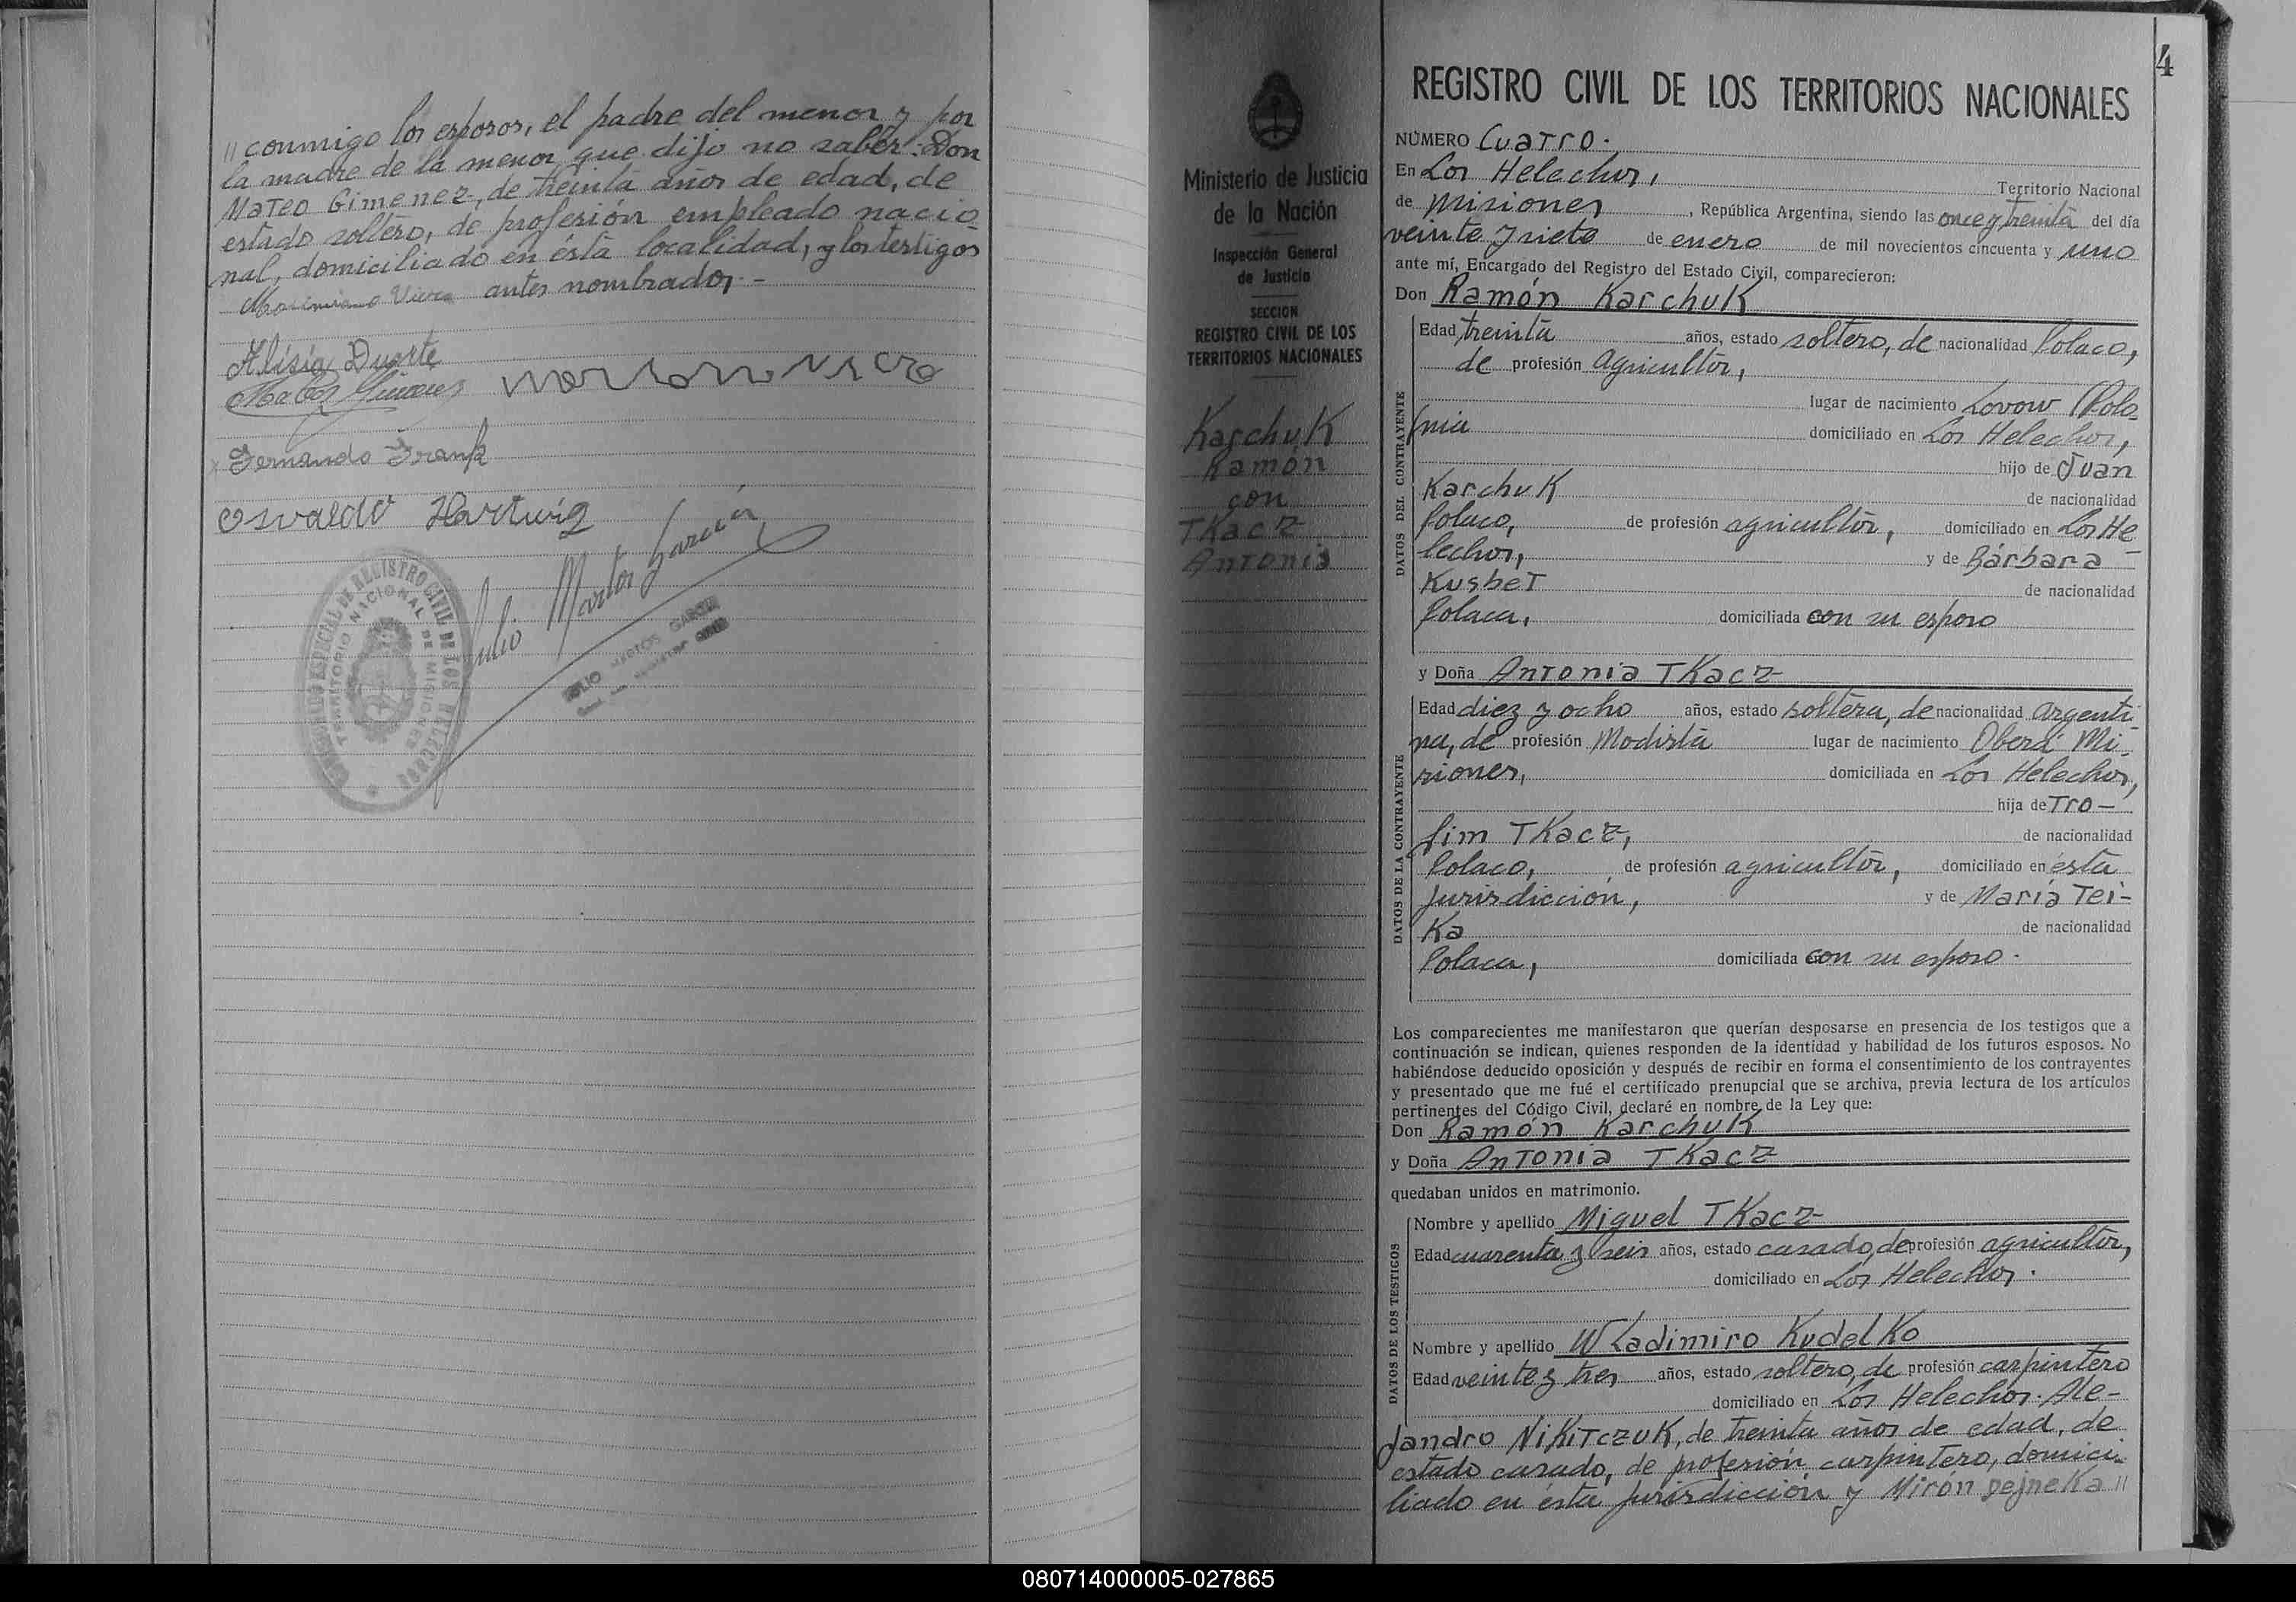 " conmigo los esposos, el padre del menor y por
la madre de la menor que dijo no saber: Don
Mateo Gimenez, de treinta años de edad, de
estado soltero, de profesión empleado nacio-
nal, domiciliado en ésta localidad, y los testigos
Viera antes nombrados.-
Alisia Duarte
Fernando Frank
Osvaldo Hartwig
Julio Martos Garcia
JULIO MARTOS GARCIA
4
REGISTRO CIVIL DE LOS TERRITORIOS NACIONALES
Ministerio de Justicia
de la Nación
Inspección General
de Justicia
SECCION
REGISTRO CIVIL DE LOS
TERRITORIOS NACIONALES
Karchuk
Ramón
con
Tkacz
Antonia
NÚMERO Cuatro.
En Los Helechos, Territorio Nacional
de Misiones, República Argentina, siendo las once y treinta del día
veinte y siete de enero de mil novecientos cincuenta y uno
ante mí, Encargado del Registro del Estado Civil, comparecieron:
Don Ramón Karchuk
DATOS DEL CONTRAYENTE
Edad treinta años, estado soltero, de nacionalidad Polaco,
de profesión agricultor,
lugar de nacimiento Lovow (Polo-
nia domiciliado en Los Helechos,
hijo de Juan
Karchuk de nacionalidad
Polaco, de profesión agricultor, domiciliado en Los He-
lechos, y de Bárbara
Kusbet de nacionalidad
Polaca, domiciliada con su esposo
y Doña Antonia Tkacz
DATOS DE LA CONTRAYENTE
Edad diez y ocho años, estado soltera, de nacionalidad argenti-
na, de profesión Modista lugar de nacimiento Oberá Mi-
siones, domiciliada en Los Helechos,
hija de Tro-
fim Tkacz, de nacionalidad
Polaco, de profesión agricultor, domiciliado en ésta
jurisdicción, y de María Tei-
ka de nacionalidad
Polaca, domiciliada con su esposo.
Los comparecientes me manifestaron que querían desposarse en presencia de los testigos que a
continuación se indican, quienes responden de la identidad y habilidad de los futuros esposos. No
habiéndose deducido oposición y después de recibir en forma el consentimiento de los contrayentes
y presentado que me fué el certificado prenupcial que se archiva, previa lectura de los artículos
pertinentes del Código Civil, declaré en nombre de la Ley que:
Don Ramón Karchuk
y Doña Antonia Tkacz
quedaban unidos en matrimonio.
DATOS DE LOS TESTIGOS
Nombre y apellido Miguel Tkacz
Edad cuarenta y seis años, estado casado, de profesión agricultor,
domiciliado en Los Helechos.
Nombre y apellido Wladimiro Kudelko
Edad veinte y tres años, estado soltero, de profesión carpintero
domiciliado en Los Helechos. Ale-
jandro Nikitczuk, de treinta años de edad, de
estado casado, de profesión carpintero, domici-
liado en ésta jurisdicción y Mirón Dejneka "
080714000005-027865